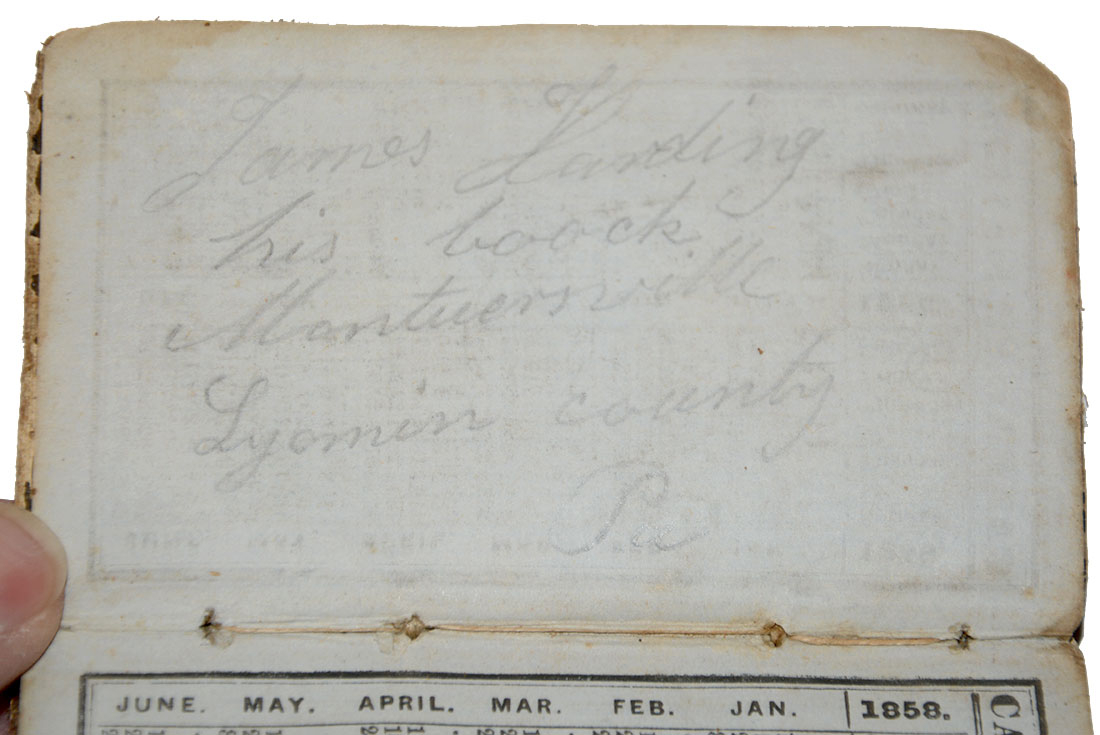 James Harding
his boock
Montuersville
Lyomin county
Pa
JUNE. MAY. APRIL. MAR. FEB. JAN. 1858.
CA